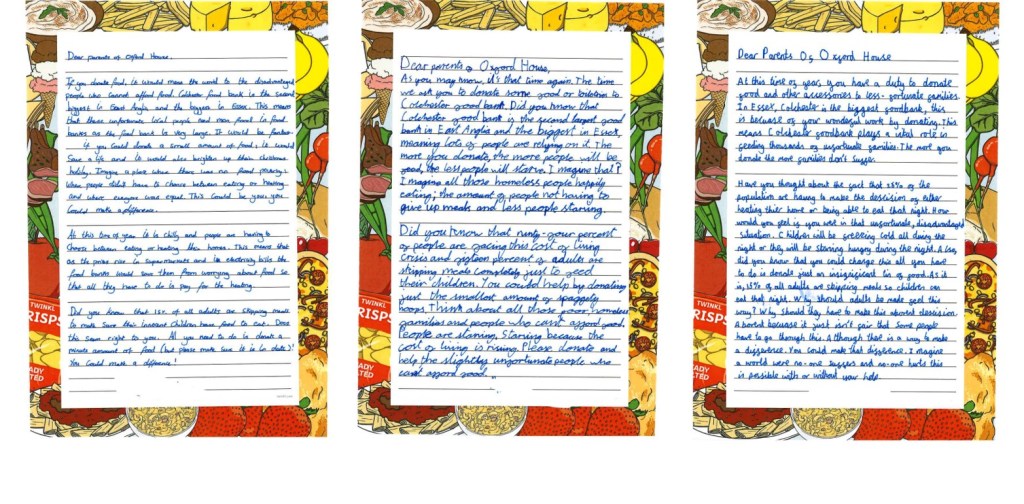 Dear parents of Oxford House,
If you donate food, it would mean the world to the disadvantaged
people who cannot afford food. Colchester food bank is the second
biggest in East Anglia and the biggest in Essex. This means
that these unfortunate local people and men found in food
banks as the food bank is very large. It would be
if you could donate a small amount of food, it would
save a life and it would also brighten up their christmas
holiday. Imagine a place where there was no food poverty;
where people didn't have to choose between eating or heating
and where everyone was equal. This could be your, you
could make a difference.
At this time of year it is chilly and people are having to
choose between eating or heating their homes. This means that
as the price rise in supermarkets and in electricity bills the
food banks would save them from worrying about food so
that all they have to do is pay for the heating.
Did you know that 15% of all adults are skipping meals
to make sure their innocent children have food to eat. Does
this seem right to you. All you need to do is donate a
minute amount of food (but please make sure it is in date)!
You could make a difference!
Dear parents of Oxford House,
As you may know, it's that time again. The time
we ask you to donate some food or toiletries to
Colchester food bank. Did you know that
Colchester food bank is the second largest food
bank in East Anglia and the biggest in Essex,
meaning lots of people are relying on it. The
more you donate, the more people will be
fed, the less people will starve. Imagine that!?
Imagine all those homeless people happily
eating; the amount of people not having to
give up meals and less people starving.
Did you know that ninty-four percent
of people are facing this cost of living
crisis and fifteen percent of adults are
skipping meals completely just to feed
their children. You could help by donating
just the smallest amount of spaggety
hoops. Think about all those poor homeless
families and people who can't afford food.
People are starving, starving because the
cost of living is rising. Please donate and
help the slightly unfortunate people who
can't afford food.
Dear Parents Of Oxford House
At this time of year, you have a duty to donate
food and other accessories to less-fortunate families.
In Essex, Colchester is the biggest foodbank, this
is because of your wonderful work by donating. This
means Colchester foodbank plays a vital role in
feeding thousands of unfortunate families. The more you
donate the more families don't suffer.
Have you thought about the fact that 28% of the
population are having to make the descision of either
heating their home or being able to eat that night. How
would you feel is you were in that unfortunate, disadvantaged
situation. Children will be getting cold all during the
night or they will be starving hungry during the night.
did you know that you could change this all you have
to do is donate just an insignificant tin of food. As it
is, 15% of all adults are skipping meals so children can
eat that night. Why should adults be made feel this
way? Why should they have to make this abhorent descision.
Abhorent because it just isn't fair that some people
have to go through this. Although that is a way to make
a difference. You could make that difference. Imagine
a world were no-one suffers and no-one hurts this
is possible with or without your help.
TWINKL
CRISPS
READY
SALTED
TWINKL
CRISPS
READY
SALTED